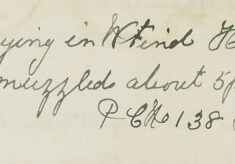 ying in W End H
muzzled about 5p
P C No 138